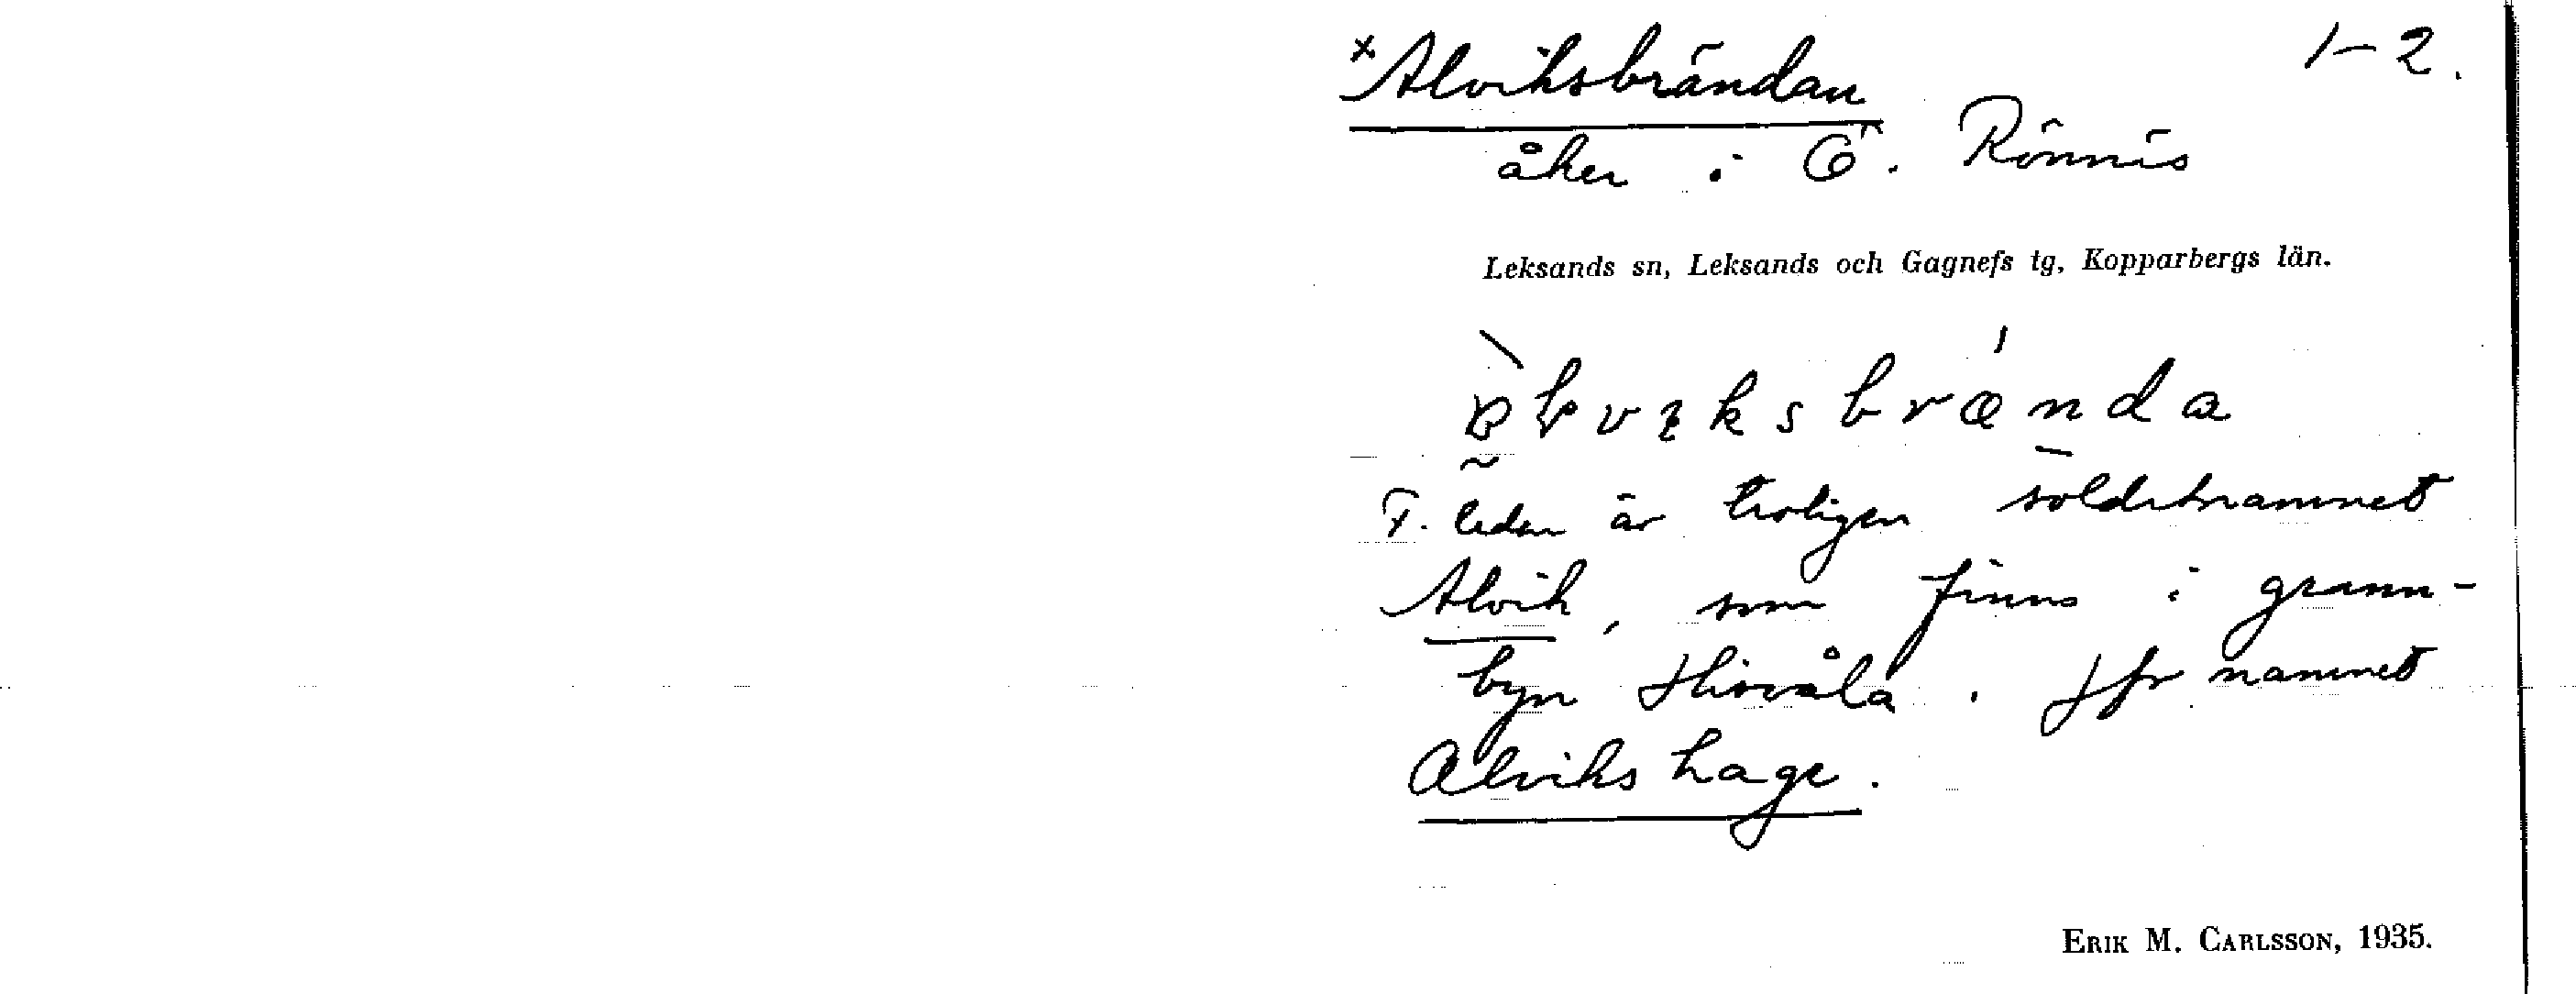 ×Alviksbrändan 1–2.
åker i Ö. Rönnäs
Leksands sn, Leksands och Gagnefs tg, Kopparbergs län.
F. leden är troligen soldatnamnet
Alvik, som finns i grann-
byn Hisvåla. Jfr namnet
Alvikshage.
ERIK M. CARLSSON, 1935.